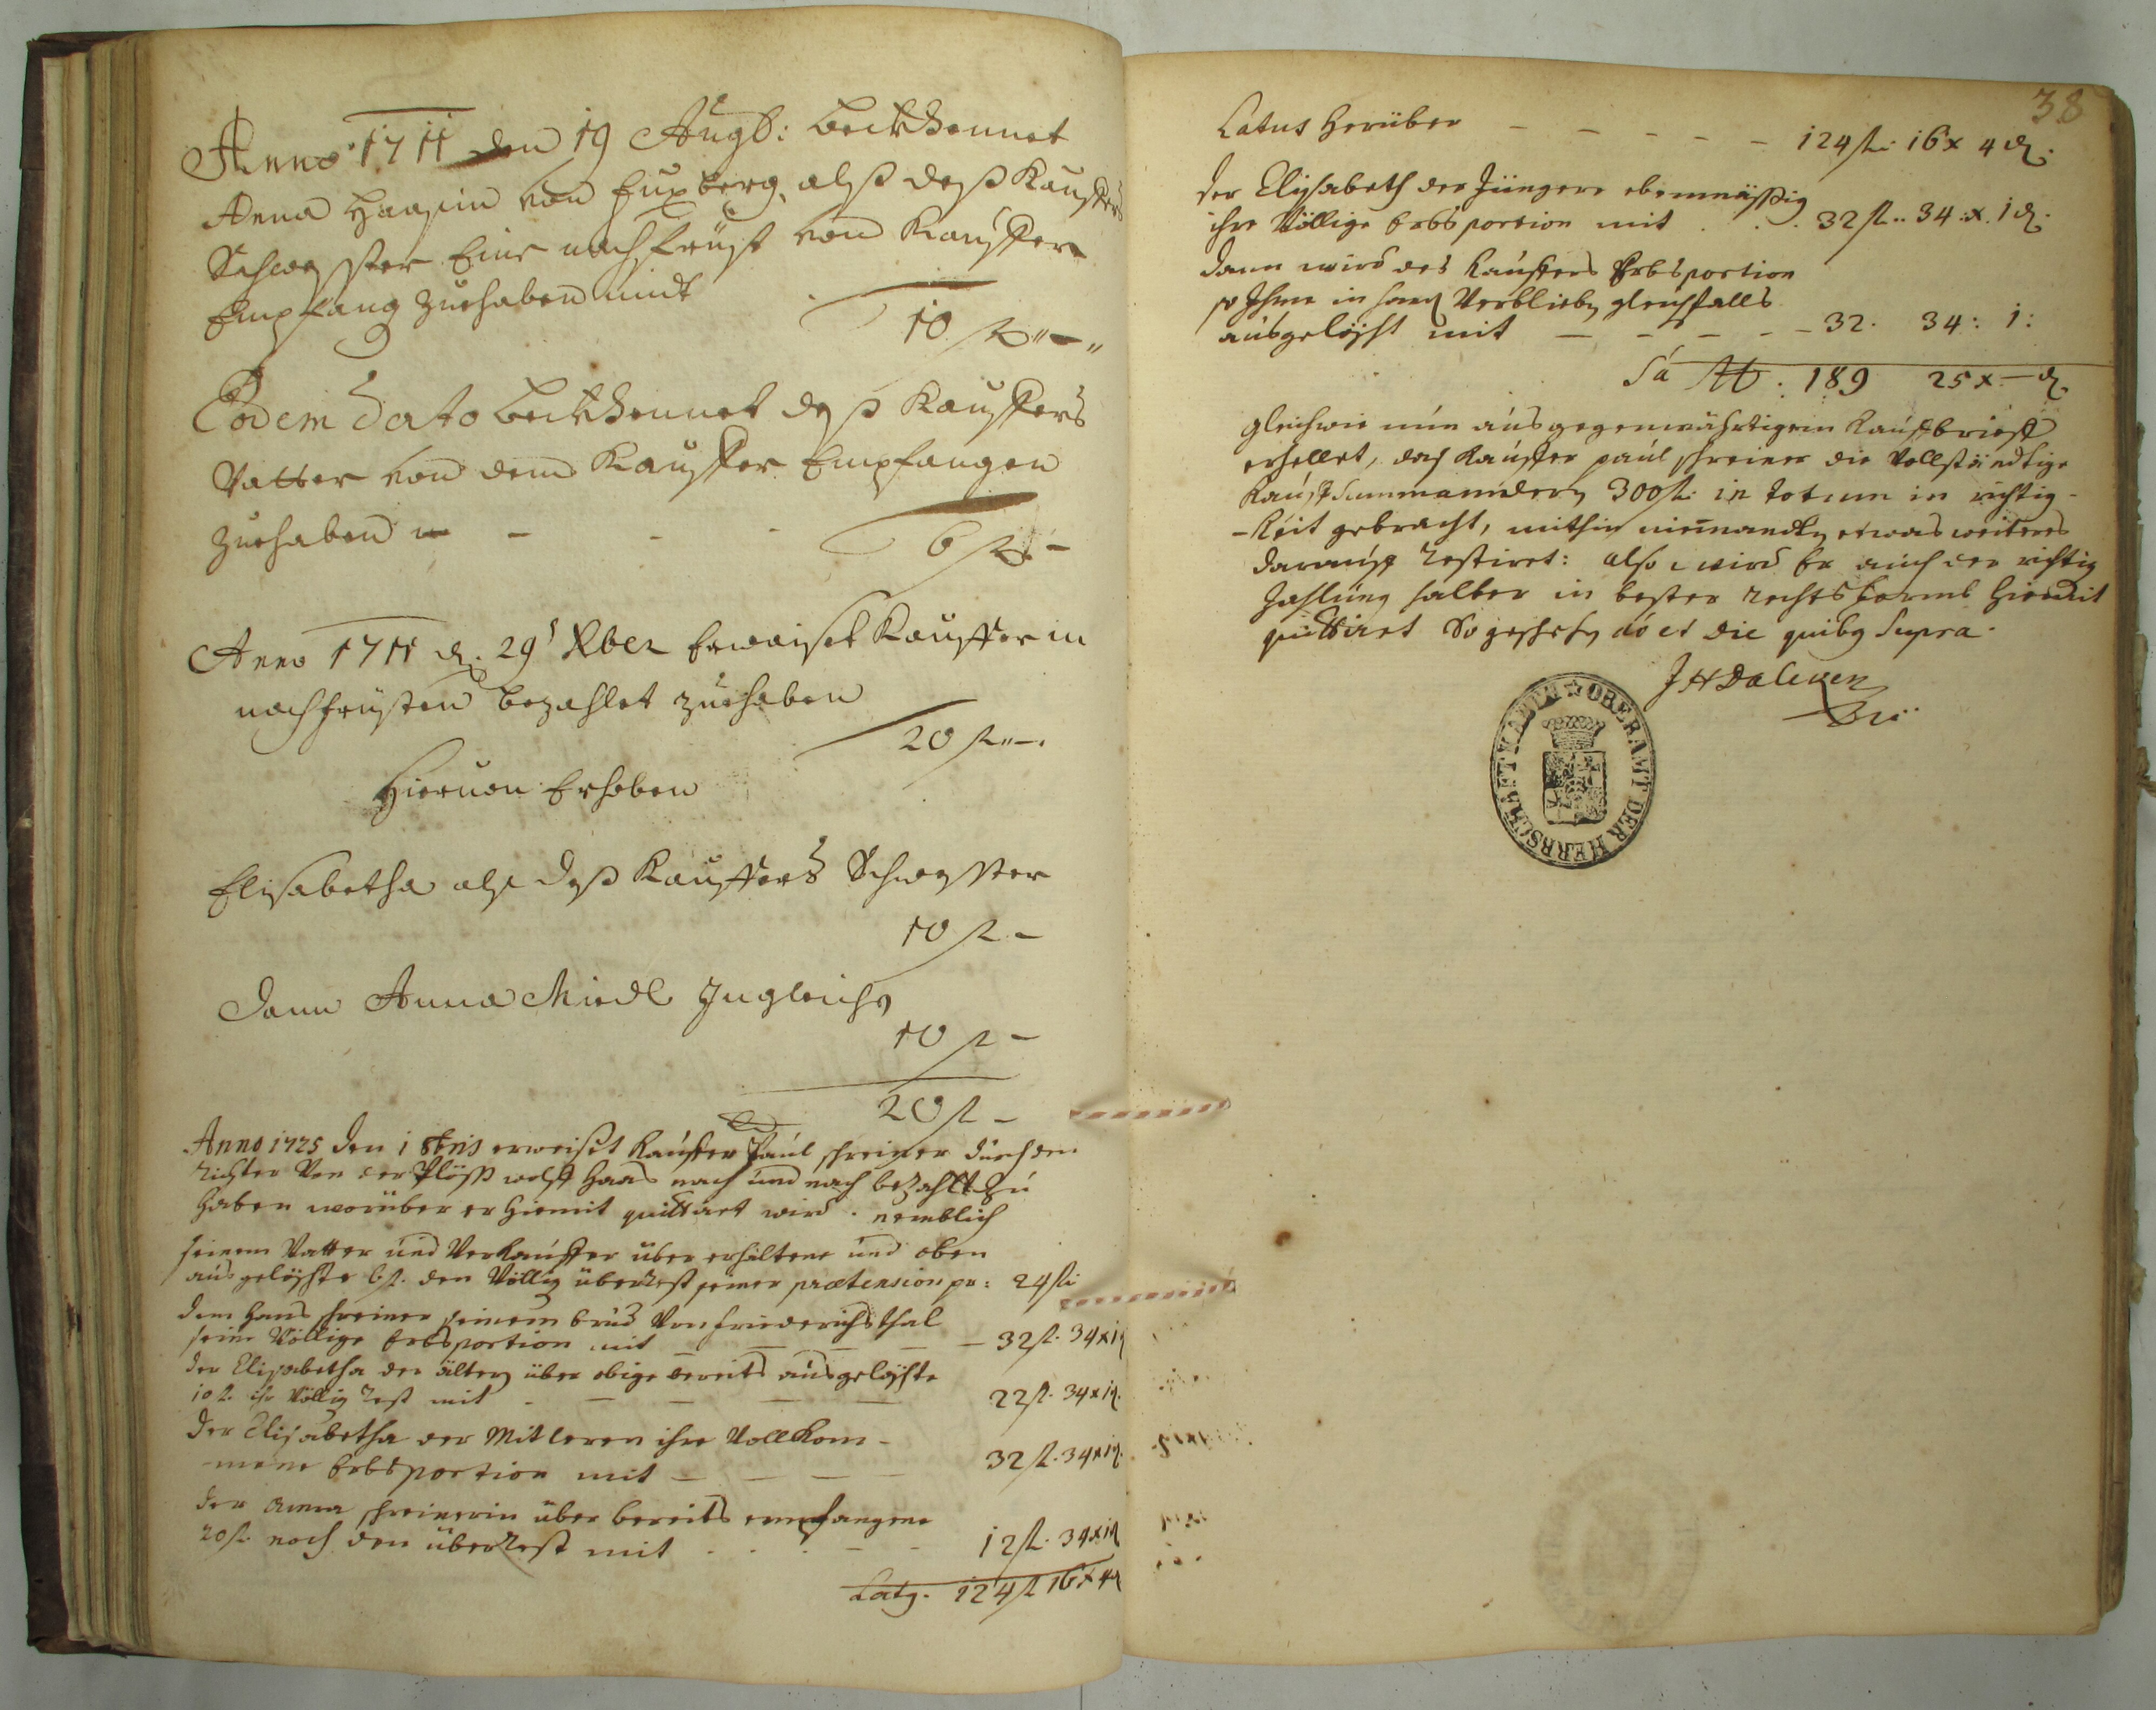 Anno 1711 den 19 Augb: bekhennet
Anna Haasin von Fuxberg, alß deß Kauffers
Schwester Eine nachfrüst von Kauffer
Empfang zuehaben mit
10 fl „ — „
Eodem Dato bekhennet deß Kauffers
Vatter von dem Kauffer Empfangen
zuehaben — — -
6 fl —
Anno 1711 d. 29 Xber Erweiset Kauffer in
nachfrüsten bezahlet zuehaben
20 fl „ —
Hieruon Erhoben
Elisabetha alß deß Kauffers Schwester
10 fl —
dann Anna Miedl Ingleichen
10 fl —
20 fl —
Anno 1725 den 1 8bris erweiset Kauffer Paul schreiner durch den
richter Von der Plöss wolff Haas nach und nach bezahlt zu
haben worüber er hiemit quittiret wird. nemblich
seinem Vatter und Verkauffer über erhaltene und oben
ausgelöste 6 fl. den Völlig überrest seiner prætension pr: 24 fl:
dem Hans schreiner seinem brud Von friederichsthal
seine Völlige Erbsportion mit — — — — 32 fl. 34 x 1 d
der Elisabetha der ältern über obige bereits ausgelöste
10 fl. ihr Völlig rest mit - — — — — 22 fl. 34 x 1 d.
der Elisabetha der Mitleren ihre Vollkom-
-mene Erbsportion mit — — — — 32 fl. 34 x 1 d.
der Anna schreinerin über bereits empfangene
20 fl. noch den überrest mit . . . — - 12 fl. 34 x 1 d
Latus. 124 fl 16 x 4 d
38
Latus herüber — — — — — 124 fl: 16 x 4 d.
der Elisabeth der Jüngere ebenmässig
ihre Völlige Erbs portion mit . . . 32 fl.. 34 : x. 1 d.
dann wird des Kauffers Erbsportion
so Ihme in handen Verblieben gleichfalls
ausgelöst mit — — — — — 32. 34: 1:
Sa fl: 189 25 x — d.
gleichwie nun aus gegenwährtigem Kauffbrieff
erhellet, das Kauffer paul schreiner die Vollständtige
Kauff Summam der 300 fl: in totum in richtig-
-keit gebracht, mithin niemandten etwas weiteres
darauff restiret: also wird Er auch der richtig
Zahlung halber in bester rechts forme hiemit
quittiret So geschehen ao et die quibus Supra.
OBERAMT DER HERRSCHAFT